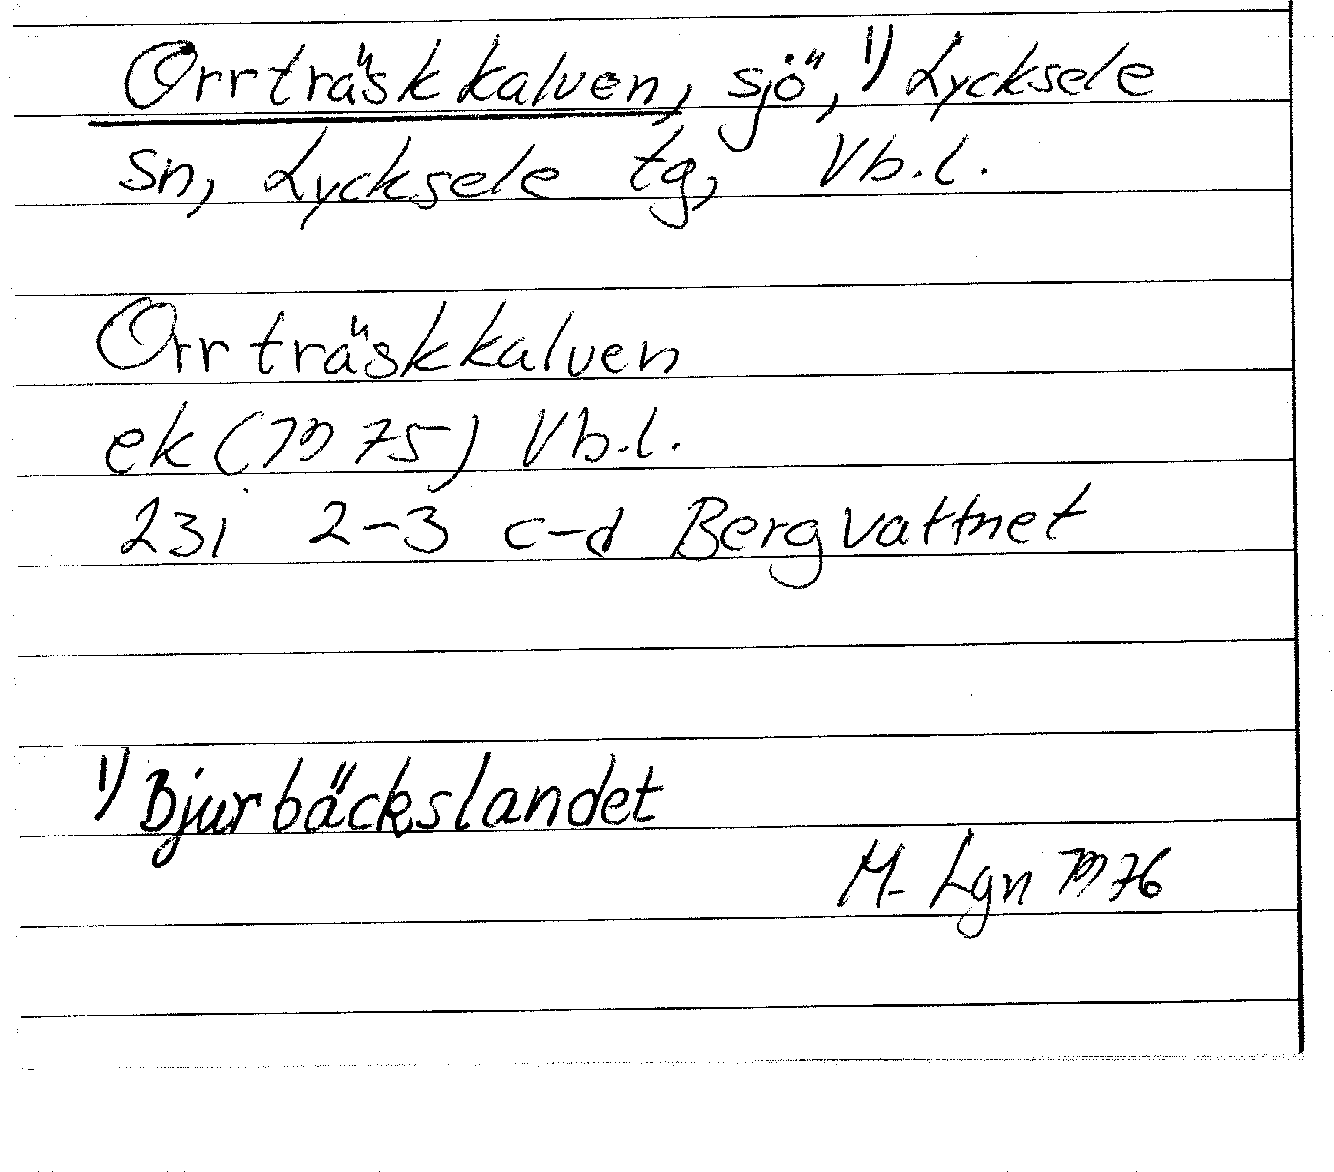 Orrträskkalven, sjö, 1) Lycksele
sn, Lycksele tg, Vb.l.
Orrträskkalven
ek (1975) Vb.l.
23i 2-3 c-d Bergvattnet
1) Bjurbäckslandet
M. Lgn 1976